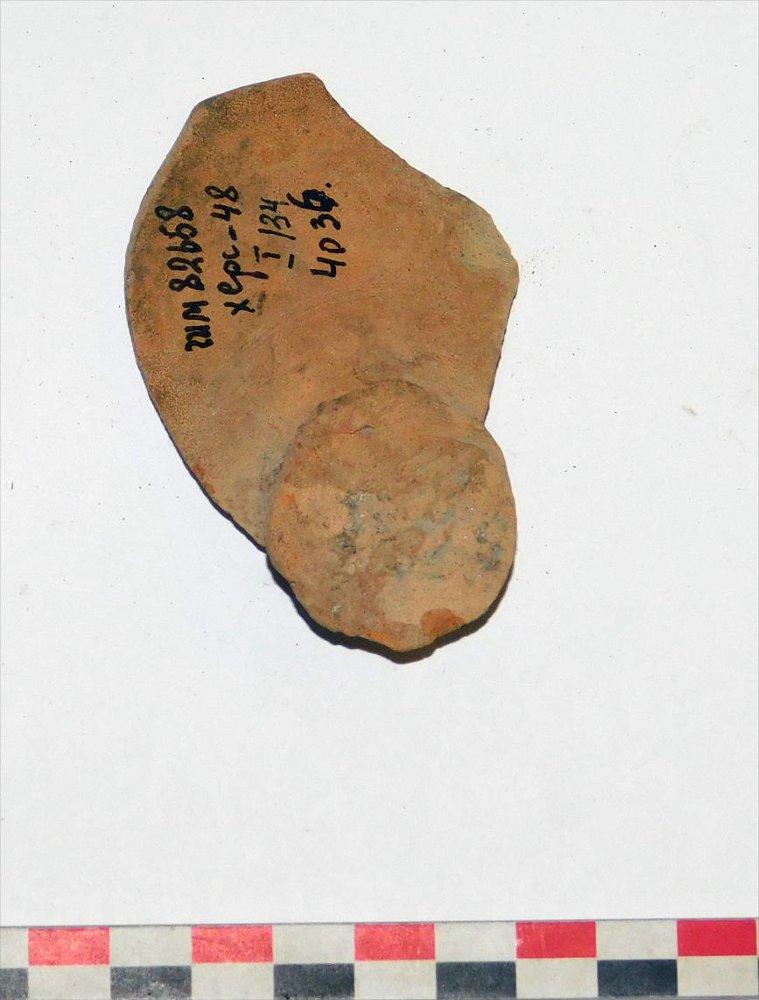 гим 82658
херс-48
I 134
4036.